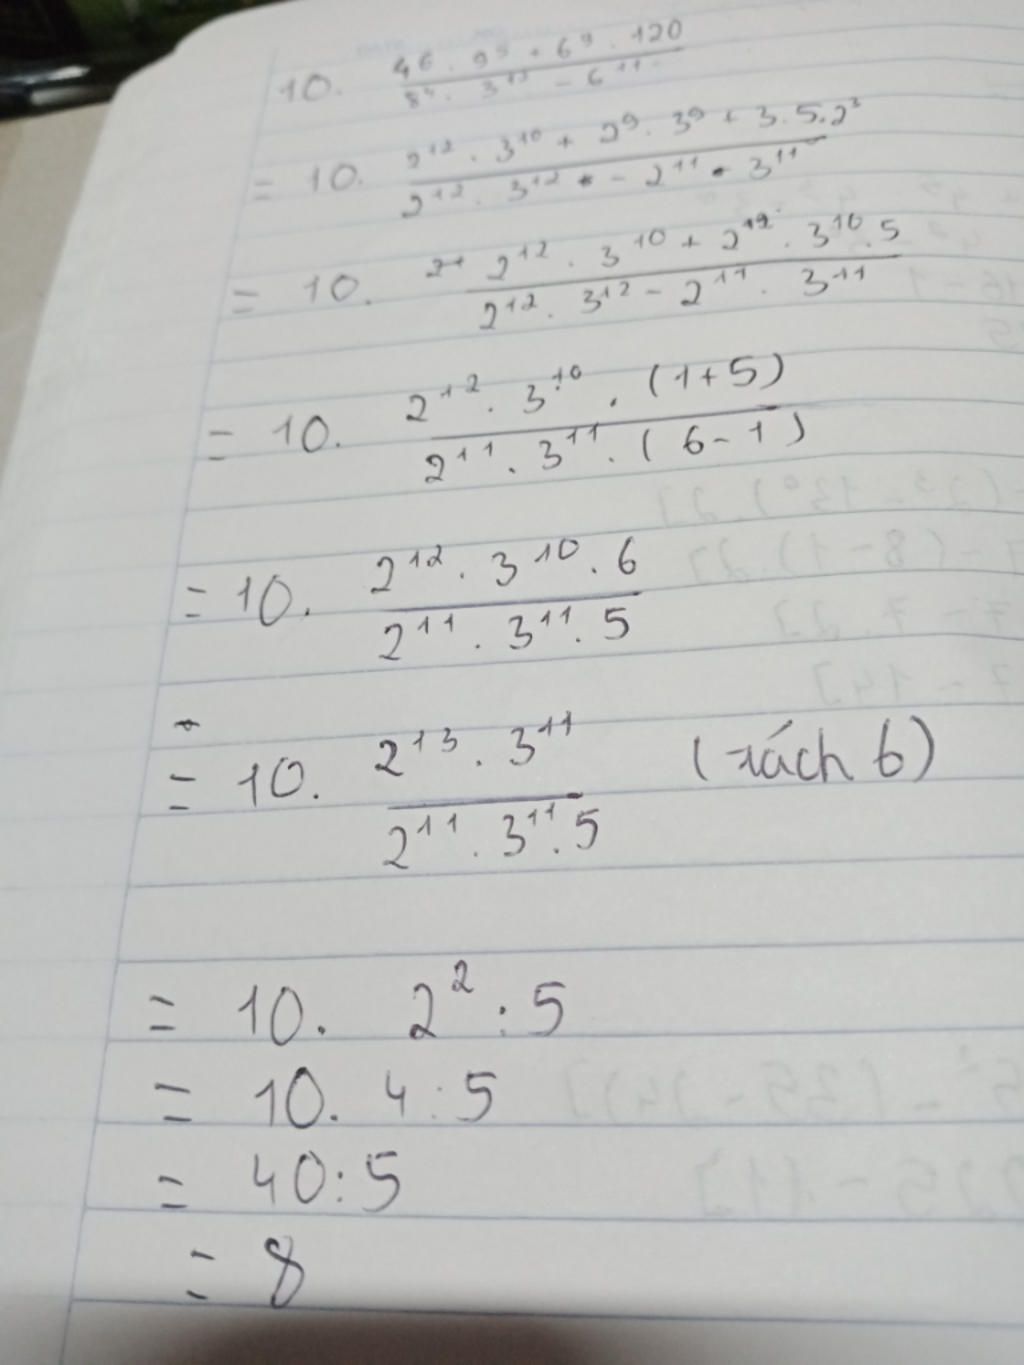 10. \frac{4^6 . 9^5 + 6^9 . 120}{8^4 . 3^{12} - 6^{11}}
= 10. \frac{2^{12} . 3^{10} + 2^9 . 3^9 + 3 . 5 . 2^3}{2^{12} . 3^{12} - 2^{11} . 3^{11}}
= 10. \frac{2^{12} . 3^{10} + 2^{12} . 3^{10} . 5}{2^{12} . 3^{12} - 2^{11} . 3^{11}}
= 10. \frac{2^{12} . 3^{10} . (1 + 5)}{2^{11} . 3^{11} . (6 - 1)}
= 10. \frac{2^{12} . 3^{10} . 6}{2^{11} . 3^{11} . 5}
= 10. \frac{2^{13} . 3^{11}}{2^{11} . 3^{11} . 5} (tách 6)
= 10. 2^2 : 5
= 10. 4 : 5
= 40 : 5
= 8